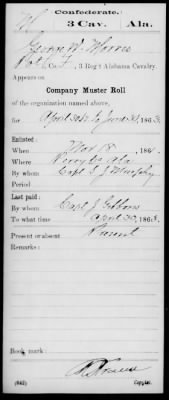 Confederate.
3 Cav. Ala.
George W.
Appears on
3 Reg't Alabama Cavalry
Company Muster Roll
of the organization named above,
for April 30 to June 30, 1863.
Enlisted:
When Mar 18, 186
Where Ala
By whom Capt Murphy
Period
Last paid:
By whom Capt J Gibbons
To what time April 30, 186
Present or absent Present
Remarks:
Book mark:
(642) Copyist.